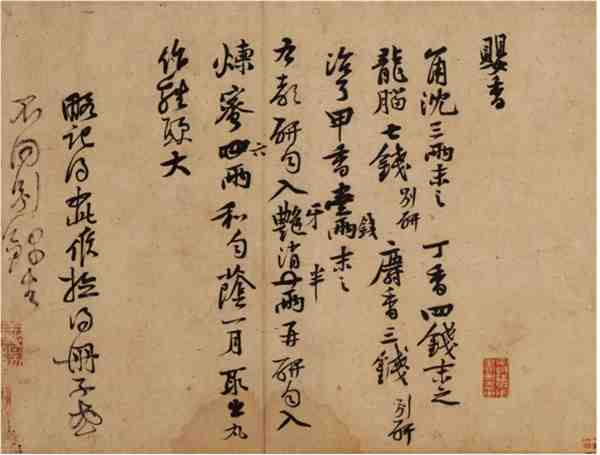 嬰香
角沈三兩末之 丁香四錢末之
龍腦七錢別研 麝香三錢別研
治了甲香壹兩錢末之
右都研勻入艷牙消半兩再研勻入
煉蜜四六兩和勻蔭一月取出丸
作雞頭大
略記得此候檢得冊子或
不同別錄去